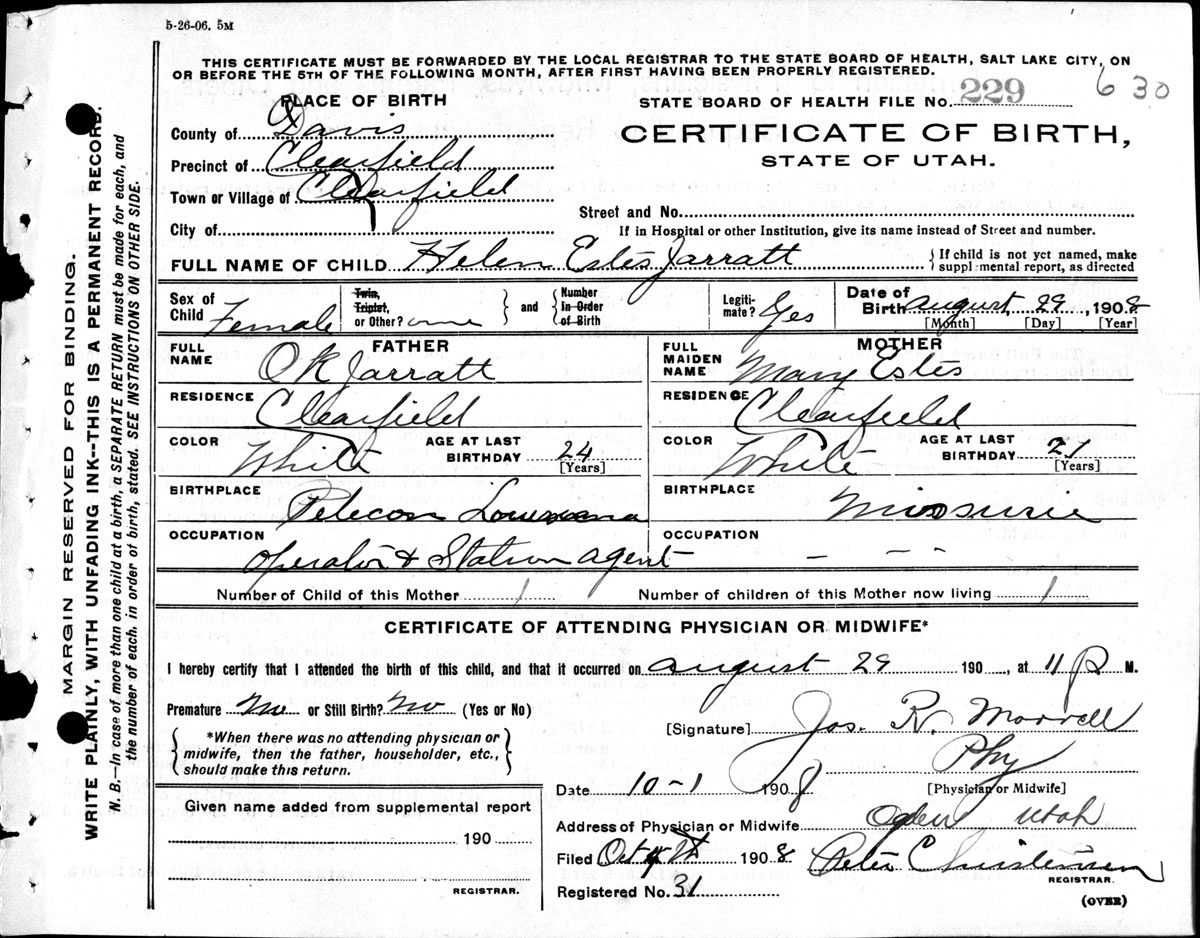 5-26-06. 5M
THIS CERTIFICATE MUST BE FORWARDED BY THE LOCAL REGISTRAR TO THE STATE BOARD OF HEALTH, SALT LAKE CITY, ON
OR BEFORE THE 5TH OF THE FOLLOWING MONTH, AFTER FIRST HAVING BEEN PROPERLY REGISTERED.
PLACE OF BIRTH
STATE BOARD OF HEALTH FILE NO. 229 630
County of Davis
CERTIFICATE OF BIRTH,
STATE OF UTAH.
Precinct of Clearfield
Town or Village of Clearfield
Street and No.
City of
If in Hospital or other Institution, give its name instead of Street and number.
FULL NAME OF CHILD Helen Estes Jarratt { If child is not yet named, make
supplemental report, as directed
Sex of Child Female
Twin, Triplet, or Other? one } and { Number In Order of Birth
Legitimate? Yes
Date of Birth August 29, 1908
[Month] [Day] [Year]
FATHER
FULL NAME O K Jarratt
RESIDENCE Clearfield
COLOR White AGE AT LAST BIRTHDAY 24
[Years]
BIRTHPLACE Pelecon Louisiana
OCCUPATION Operator & Station agent
MOTHER
FULL MAIDEN NAME Mary Estes
RESIDENCE Clearfield
COLOR White AGE AT LAST BIRTHDAY 21
[Years]
BIRTHPLACE Missurie
OCCUPATION - - -
Number of Child of this Mother 1 Number of children of this Mother now living 1
CERTIFICATE OF ATTENDING PHYSICIAN OR MIDWIFE*
I hereby certify that I attended the birth of this child, and that it occurred on August 29 190 , at 11 P M.
Premature No or Still Birth? No (Yes or No)
[Signature] Jos. R. Morrell
{ *When there was no attending physician or
midwife, then the father, householder, etc.,
should make this return. }
Phy
[Physician or Midwife]
Date 10-1 1908
Given name added from supplemental report
190
REGISTRAR.
Address of Physician or Midwife Ogden Utah
Filed Oct 1908 Peter Christensen
REGISTRAR.
Registered No. 31
(OVER)
MARGIN RESERVED FOR BINDING.
WRITE PLAINLY, WITH UNFADING INK--THIS IS A PERMANENT RECORD.
N. B.—In case of more than one child at a birth, a SEPARATE RETURN must be made for each, and
the number of each, in order of birth, stated. SEE INSTRUCTIONS ON OTHER SIDE.